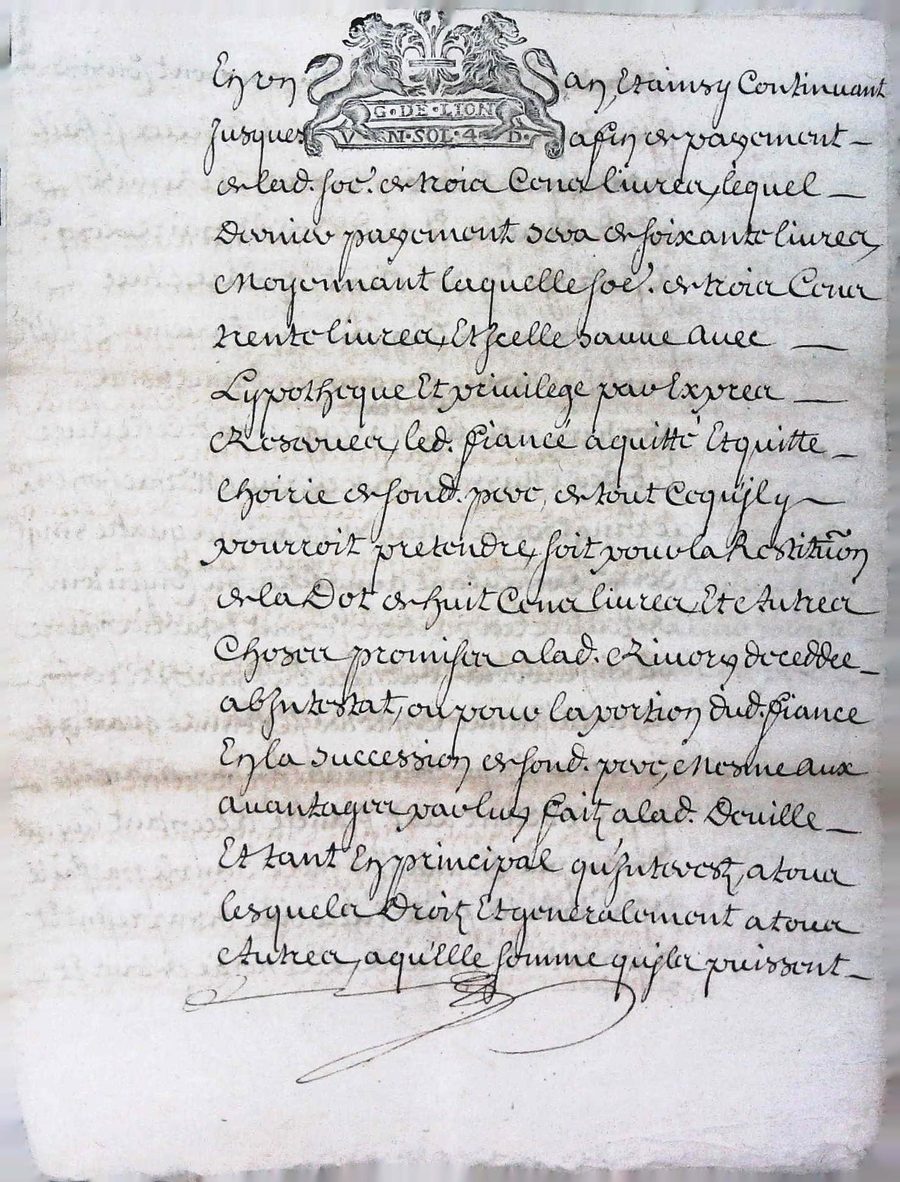 G·DE·LION
V·N·SOL·4·D·
En un an, Et ainsy Continuant
Jusques a fin de payement
de lad. soe. de trois Cens livres, lequel
Dernier payement sera de soixante livres,
Moyennant laquelle soe. de trois Cens
trente livres, Et Jcelle sauve avec
Lypotheque Et privilege par Expres
Reservés, led. fiancé a quitté Et quitte
L'hoirie de sond. pere, de tout Ce qu'jl y
pourroit pretendre, soit pour la Restituon
de la Dot de huit Cens livres, Et Autres
Choses promises a lad. Rivory deceddée
abJntestat, ou pour la portion dud. fiance
En la succession de sond. pere, Mesme aux
avantages par luy faitz a lad. Deville
Et tant En principal qu'Jnterestz, a tous
lesquels Droitz Et generalement a tous
Autres, a qu'Elle somme qu'jls puissent